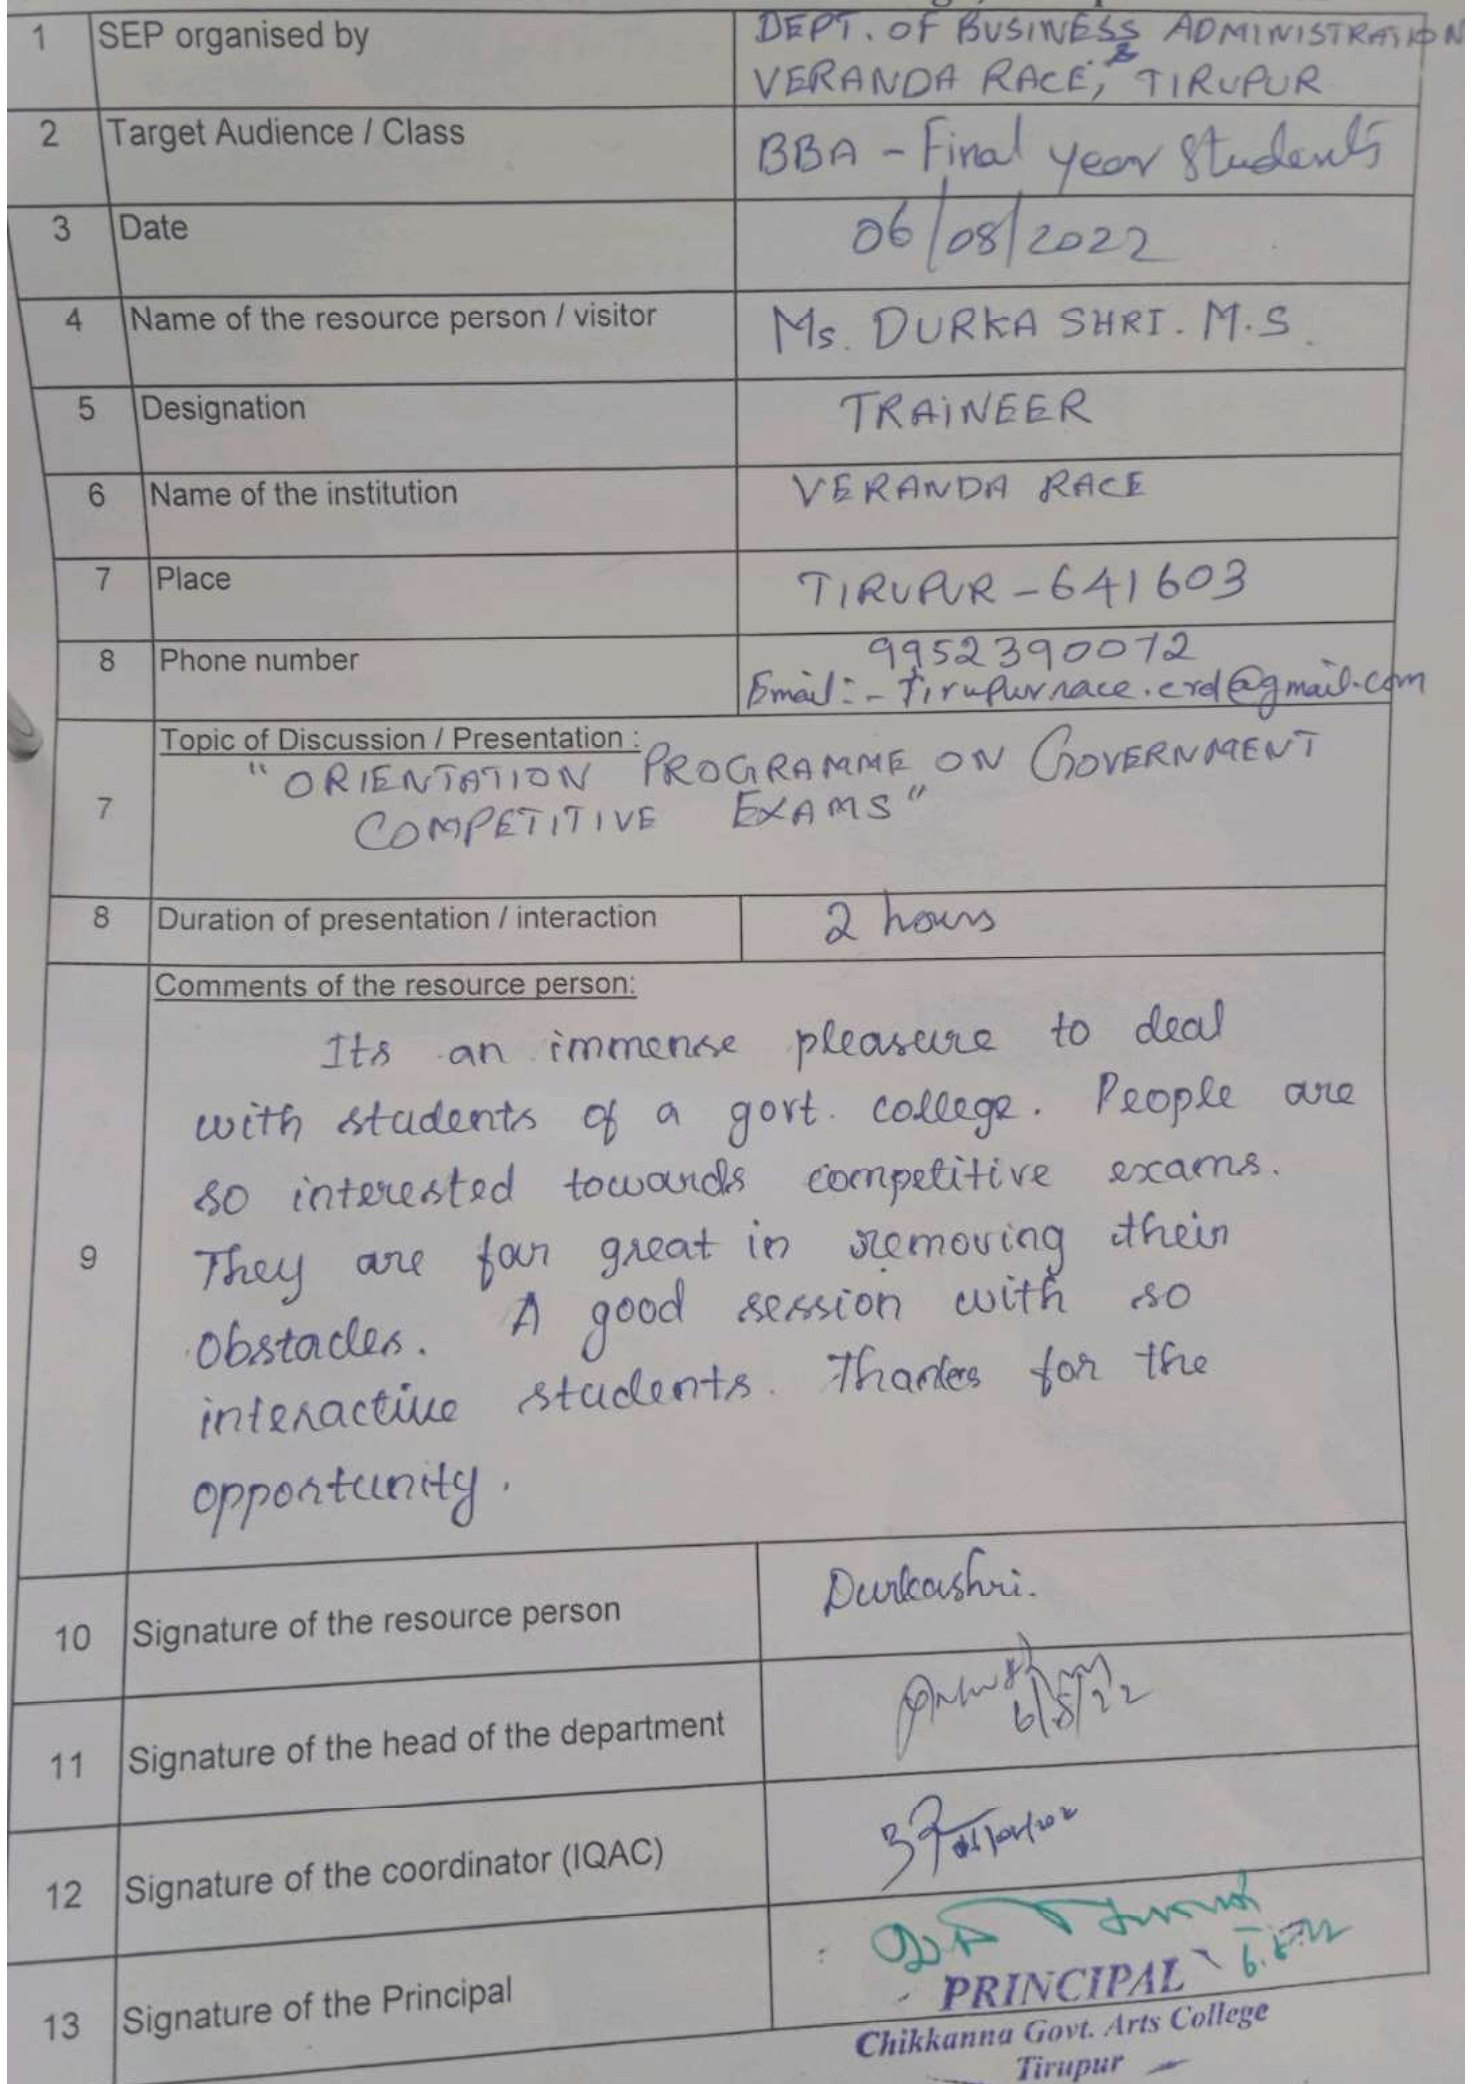 1 SEP organised by DEPT. OF BUSINESS ADMINISTRATION
& VERANDA RACE, TIRUPUR
2 Target Audience / Class BBA - Final year Students
3 Date 06/08/2022
4 Name of the resource person / visitor Ms. DURKA SHRI. M.S.
5 Designation TRAINEER
6 Name of the institution VERANDA RACE
7 Place TIRUPUR - 641603
8 Phone number 9952390072
Email:- Tirupurrace.crd@gmail.com
7 Topic of Discussion / Presentation :
"ORIENTATION PROGRAMME ON GOVERNMENT
COMPETITIVE EXAMS"
8 Duration of presentation / interaction 2 hours
9 Comments of the resource person:
Its an immense pleasure to deal
with students of a govt. college. People are
so interested towards competitive exams.
They are far great in removing their
obstacles. A good session with so
interactive students. Thanks for the
opportunity.
10 Signature of the resource person Durkashri.
11 Signature of the head of the department
6/8/22
12 Signature of the coordinator (IQAC)
13 Signature of the Principal
PRINCIPAL
Chikkanna Govt. Arts College
Tirupur